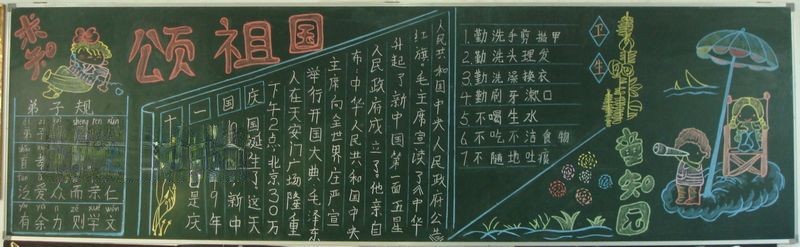 求知
弟子规
泛爱众而亲仁
有余力则学文
颂祖国
十一国庆
是庆
9年
新中
国诞生了。这天
下午2点,北京30万
人在天安门广场隆重
举行开国大典。毛泽东
主席向全世界庄严宣
布:中华人民共和国中央
人民政府成立了。他亲自
升起了新中国第一面五星
红旗。毛主席宣读了《中华
人民共和国中央人民政府公告
卫生
1.勤洗手剪指甲
2.勤洗头理发
3.勤洗澡换衣
4.勤刷牙漱口
5.不喝生水
6.不吃不洁食物
7.不随地吐痰
知园